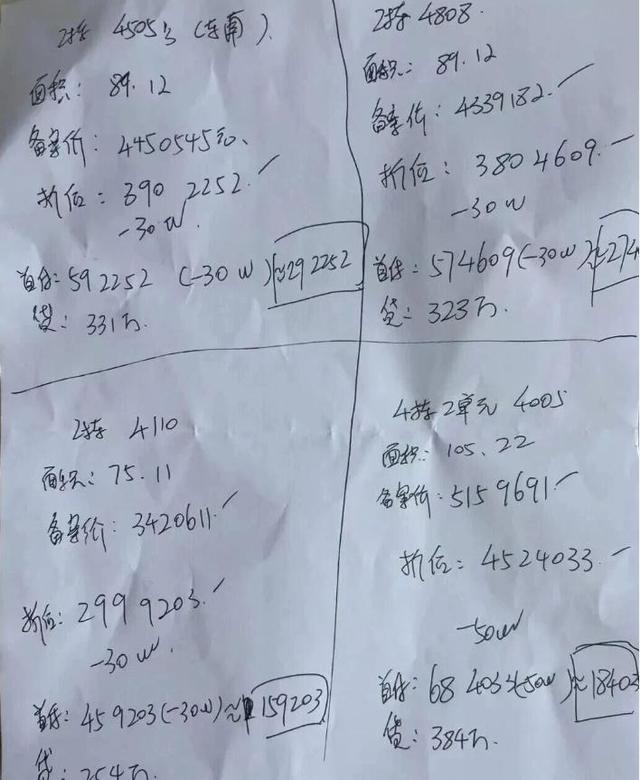 2栋 4505号 (东南).
面积: 89.12
备案价: 4450545元、
折后: 390 2252.
-30W.
首付: 592252 (-30W)≈292252
贷: 331万.
2栋 4808.
面积: 89.12
备案价: 4339182.
折后: 3804609.
-30W
首付: 574609(-30W)≈274
贷: 323万.
2栋 4110
面积: 75.11
备案价: 3420611.
折后: 299 9203.
-30W.
首付: 459203(-30W)≈159203
贷: 254万.
4栋2单元 4005
面积: 105.22
备案价: 5159691
折后: 4524033.
-50W
首付: 68 4033(-50W)≈18403
贷: 384万.